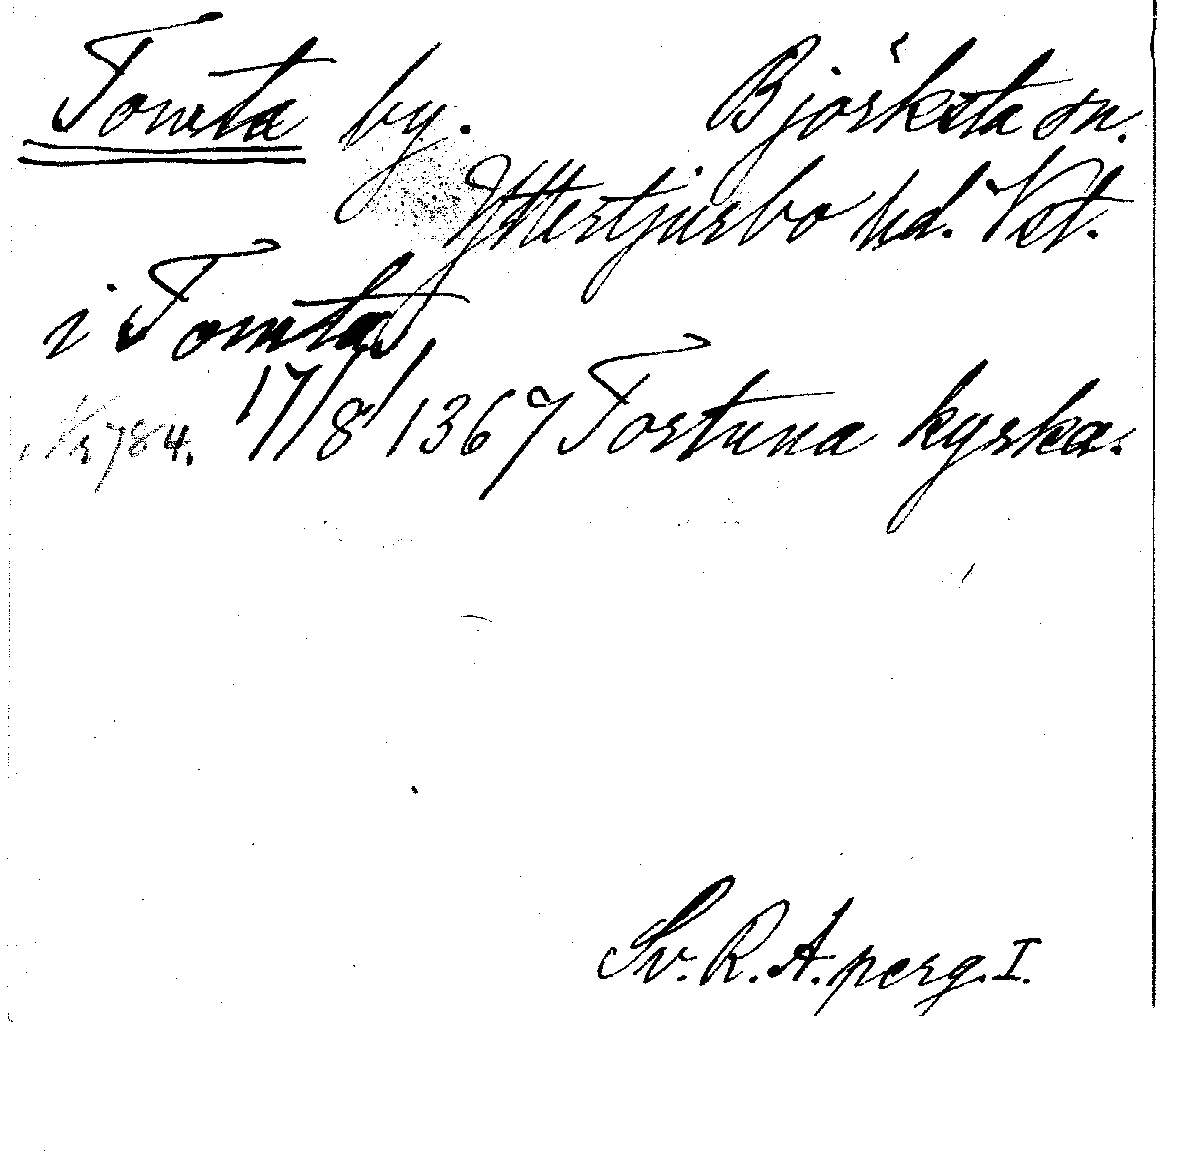 Tomta by. Björksta sn.
Yttertjurbo hd. Vst.
i Tomta
Nr 784. 17/8 1367 Tortuna kyrka.
Sv. R. A. perg. I.